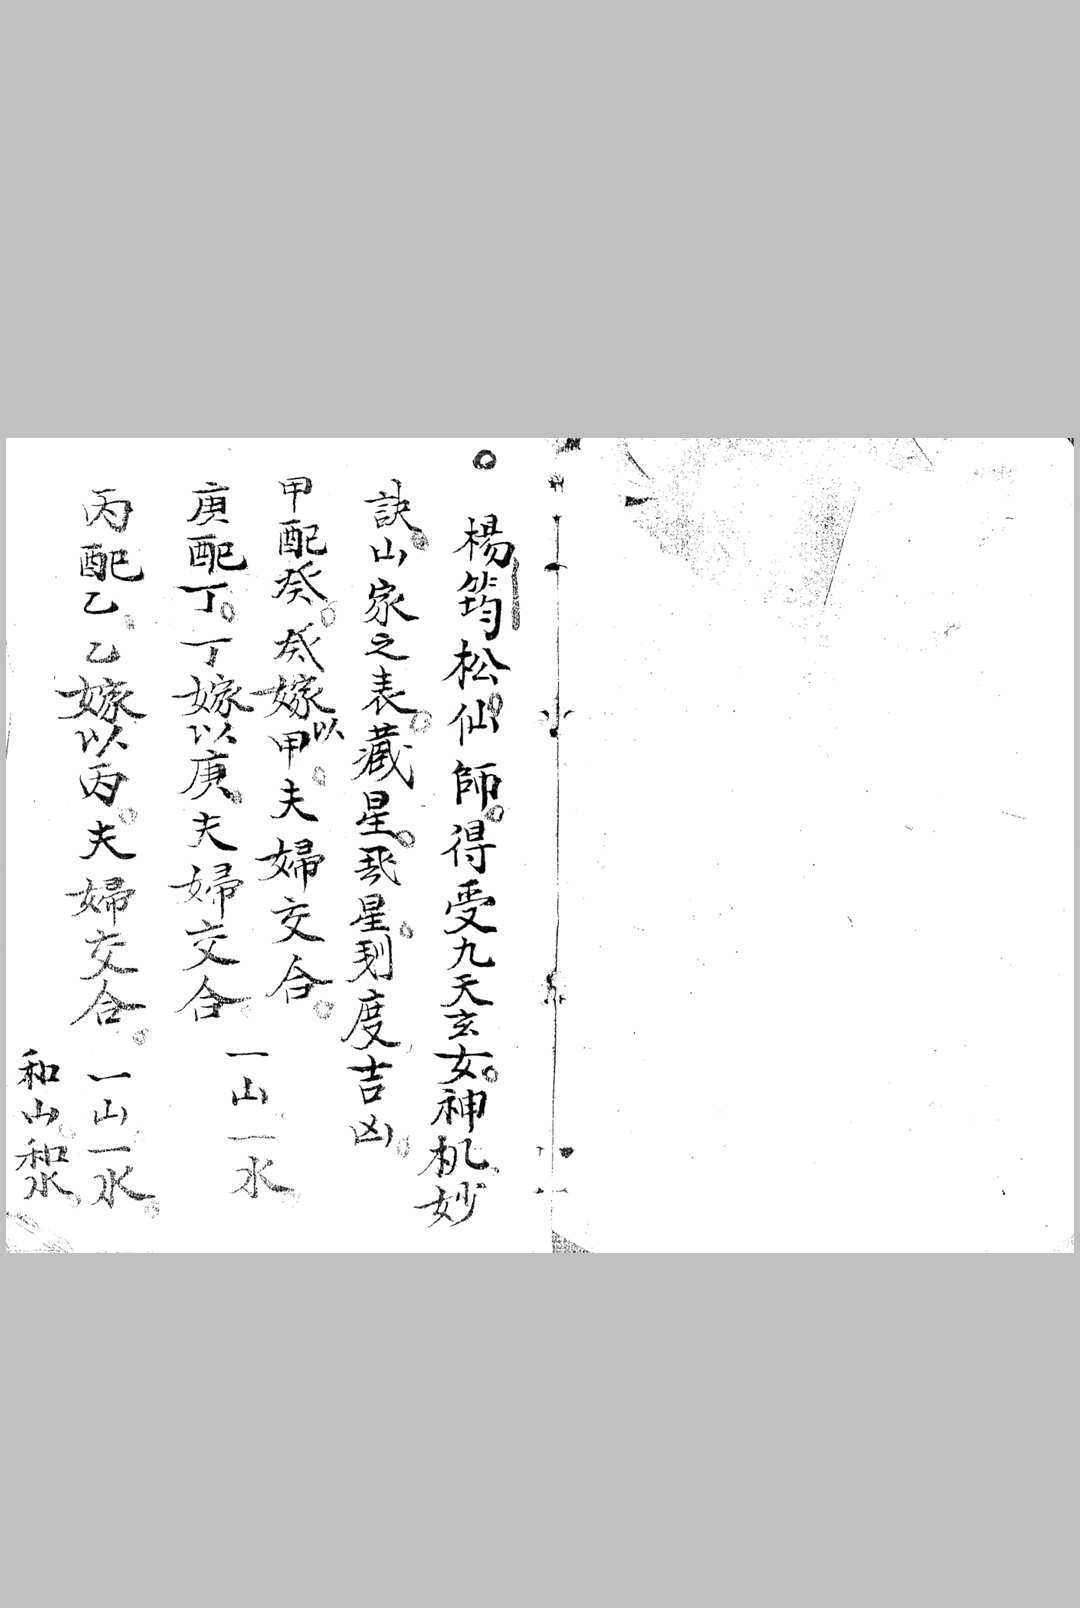 楊筠松仙師得受九天玄女神机妙
訣山家之表藏星飛星到度吉凶
甲配癸癸嫁以甲夫婦交合
庚配丁丁嫁以庚夫婦交合 一山一水
丙配乙乙嫁以丙夫婦交合 一山一水
和山和水